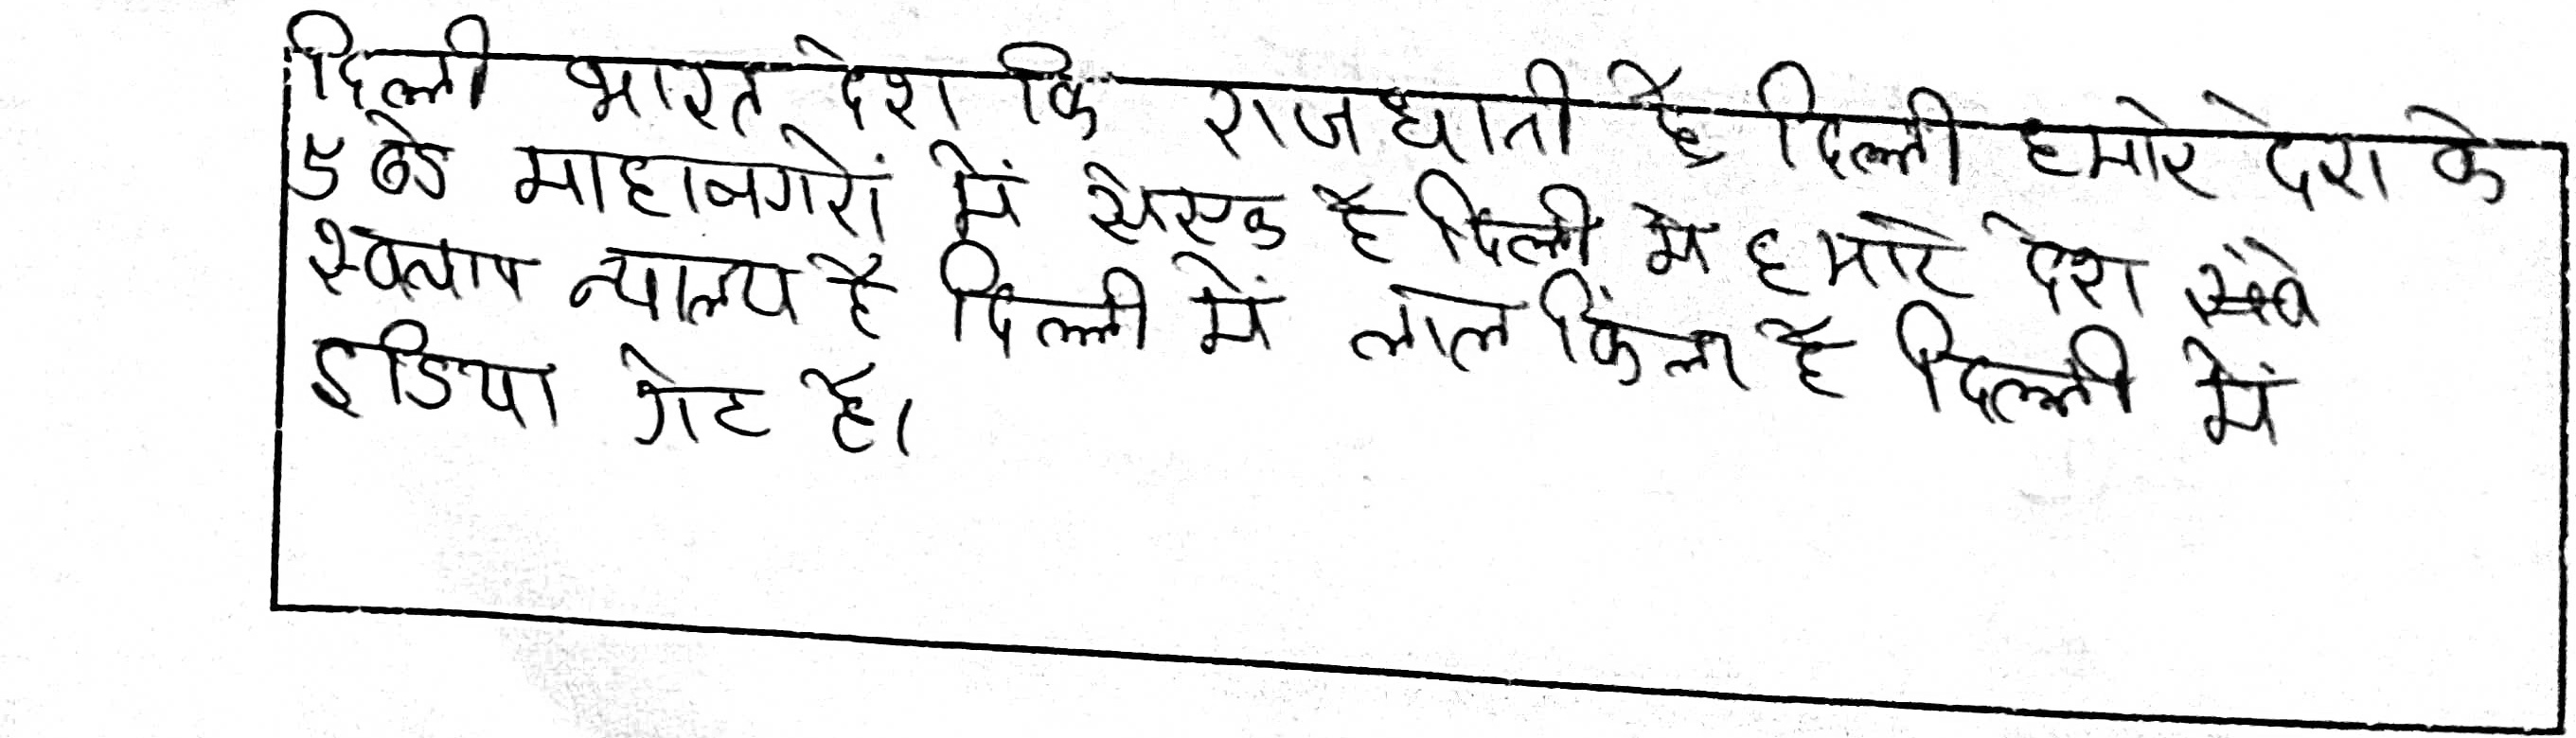 दिल्ली भारत देश कि राजधानी है दिल्ली हमारे देश के
5 बडे माहानगरों में से एक है दिल्ली में हमारे देश
न्यालय है दिल्ली में लाल किंला है दिल्ली में
इडिया गेट है।